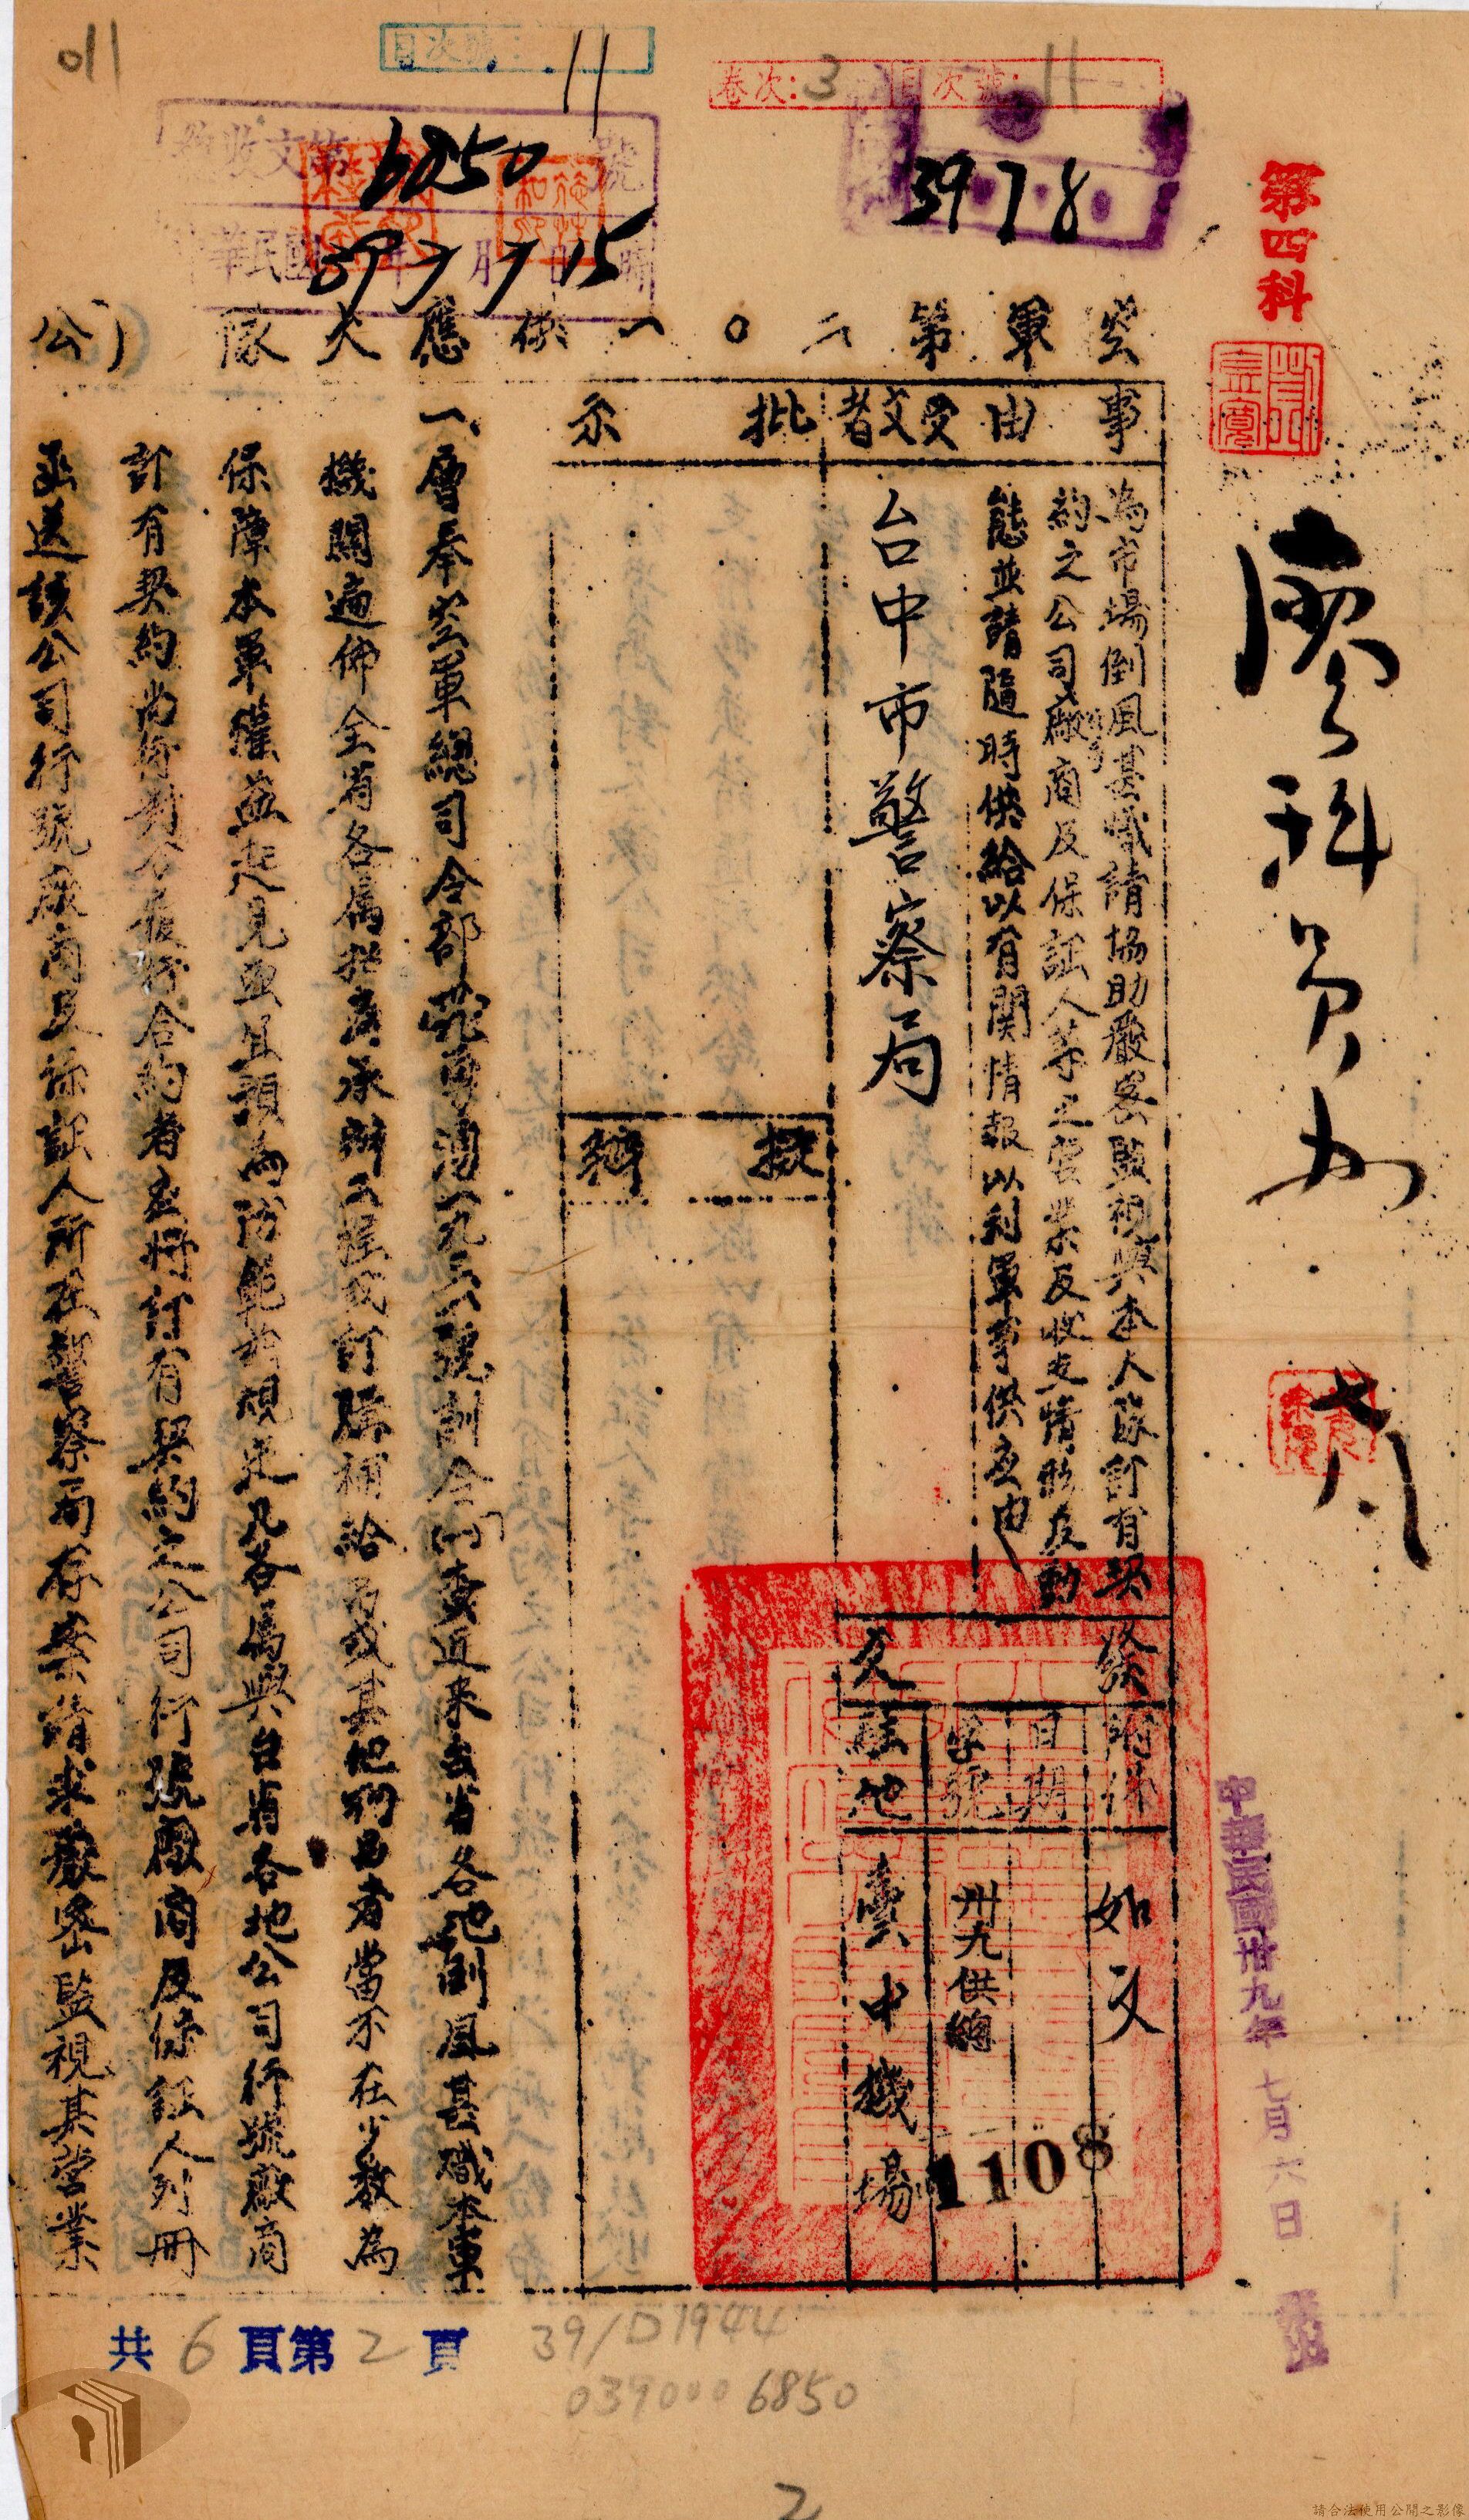 011
目次號: 11
卷次:3 目次號: 11
收文第6850號
中華民國39年7月7日15時
39 7 8
第四科
中華民國卅九年七月六日
空軍第二〇一供應大隊(公)
事由
為市場倒風甚熾請協助嚴密監視與本大隊訂有契
約之公司廠商及保証人等之營業及收支情形及動
態並請隨時供給以有關情報以利軍事供應由
受文者
台中市警察局
批示
擬辦
發文
附件 如文
日期
字號 卅九供總 1108
駐地 臺中機場
一、層奉空軍總司令部訓令「(一)查近來台省各地倒風甚熾本軍
機關遍佈全省各屬招商承辦工程或訂購補給品或其他物品者當不在少數為
保障本軍權益起見亟宜預為防範茲規定凡各屬與台省各地公司行號廠商
訂有契約尚待執行合約者應將訂有契約之公司行號廠商及保証人列冊
函送該公司行號廠商及保証人所在警察局存案請求嚴密監視其營業
共6頁第2頁
39/D1944
0390006850
2
請合法使用公開之影像